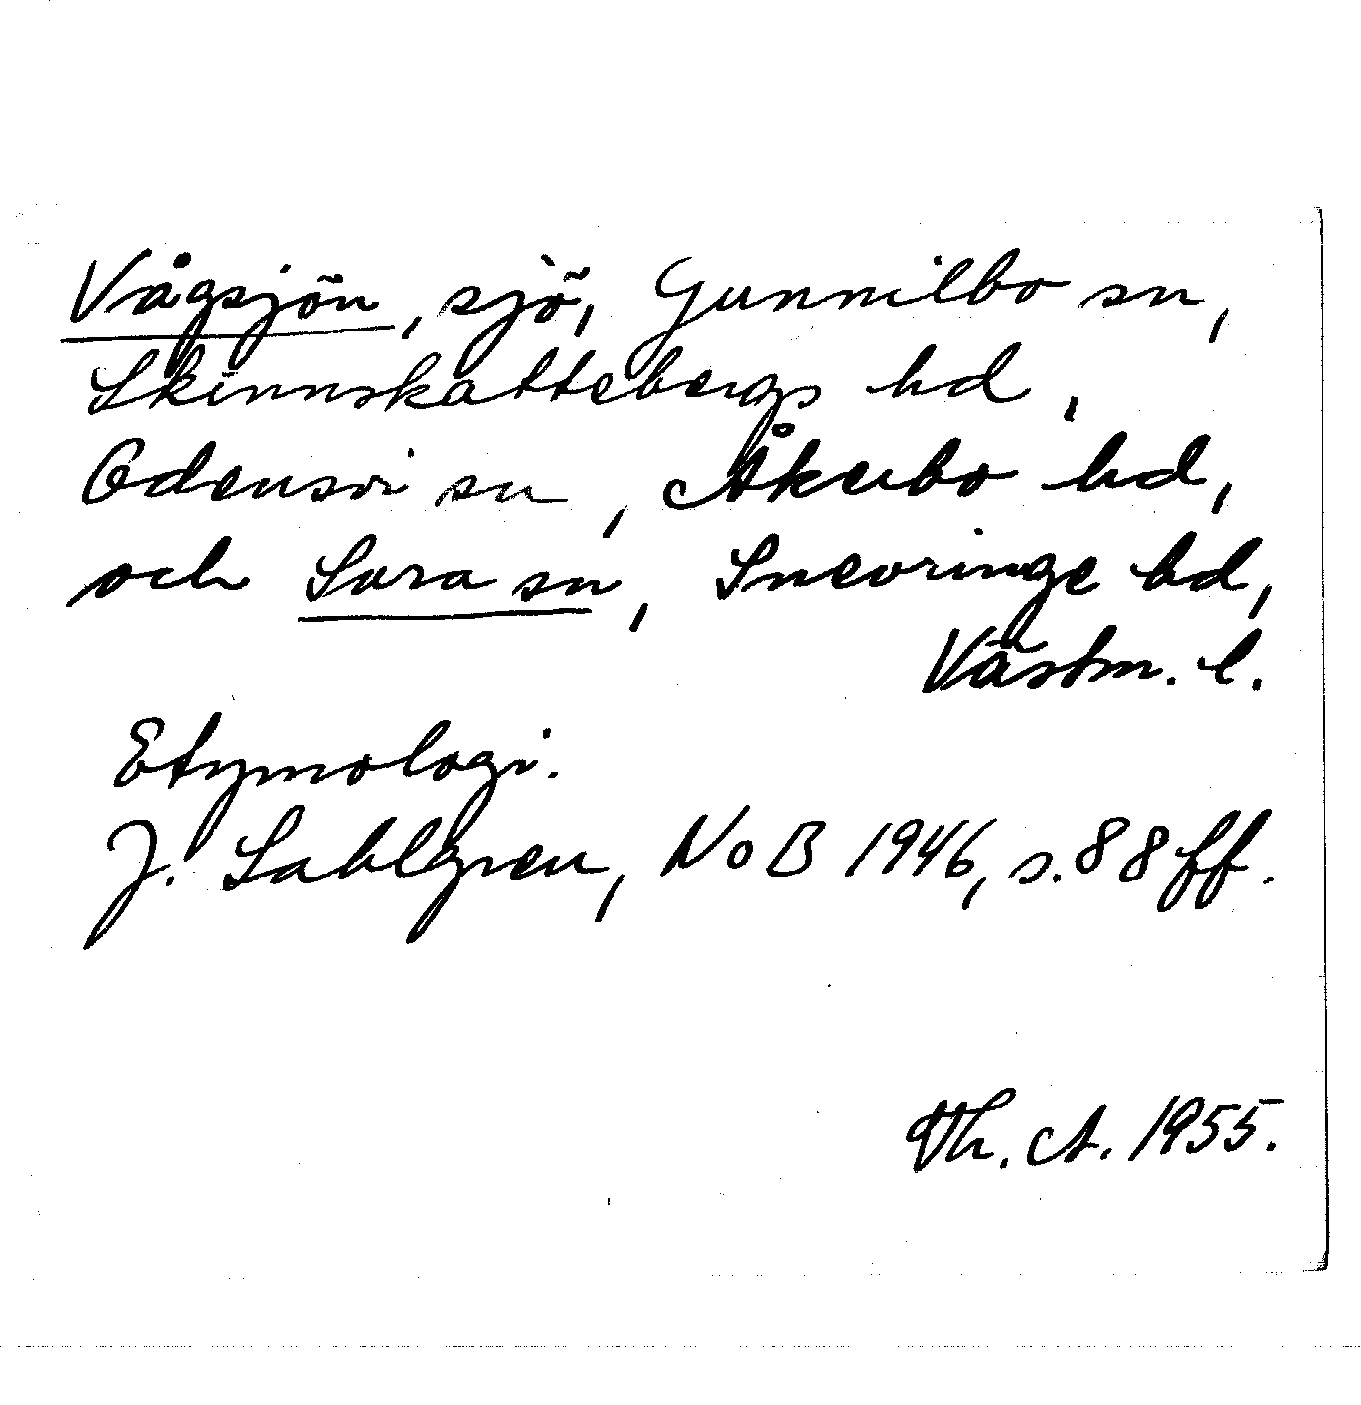 Vågsjön, sjö, Gunnilbo sn,
Skinnskattebergs hd,
Odensvi sn, Åkerbo hd,
och Sura sn, Snevringe hd,
Västm. l.
Etymologi.
J. Sahlgren, NoB 1946, s. 88 ff.
Th. A. 1955.